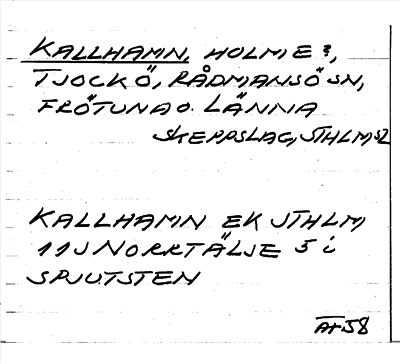 KALLHAMN, HOLME?,
TJOCKÖ, RÅDMANSÖ SN,
FRÖTUNA O. LÄNNA
SKEPPSLAG, STHLM SL
KALLHAMN EK STHLM
11J NORRTÄLJE 5 i
SPJUTSTEN
58